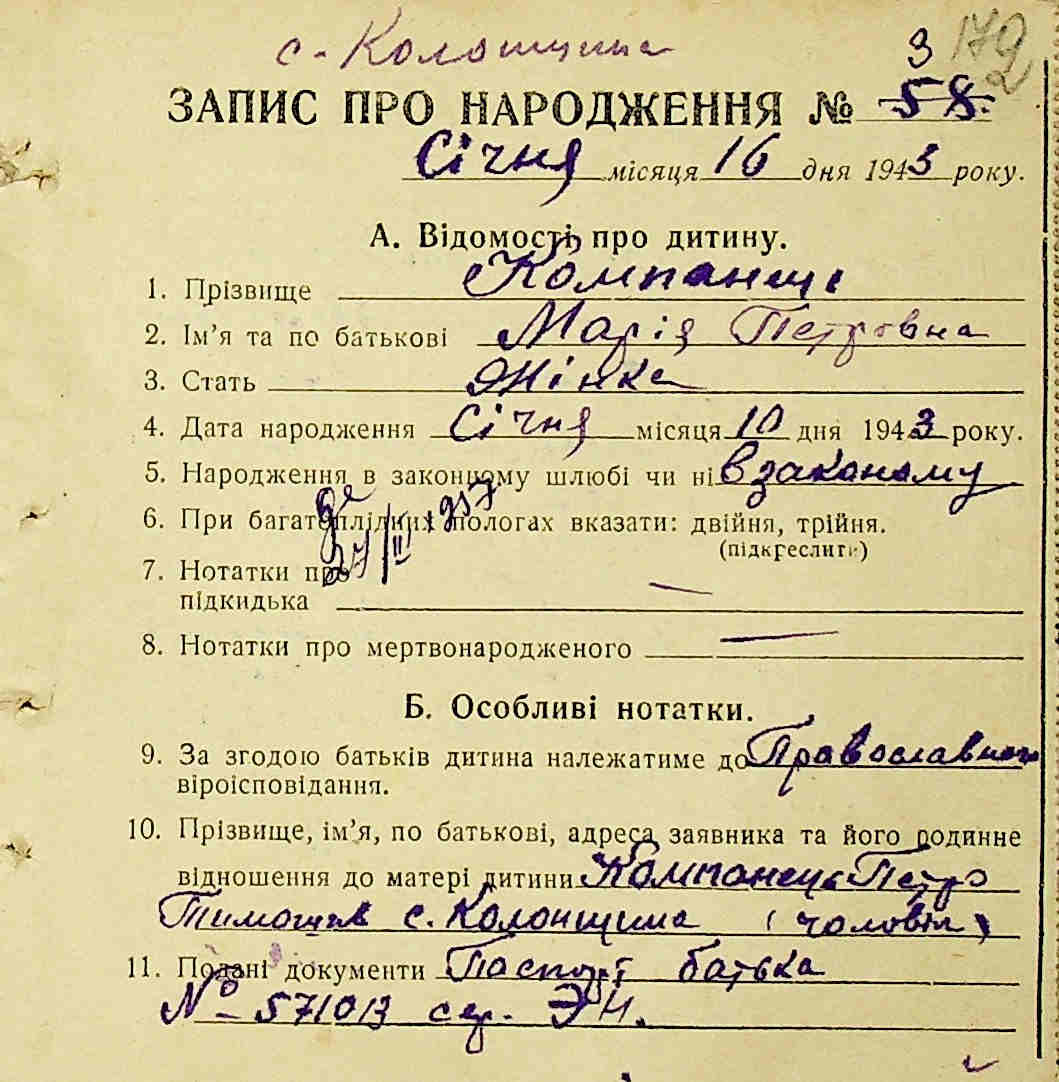 с. Колонщина 3 172
ЗАПИС ПРО НАРОДЖЕННЯ № 58.
Січня місяця 16 дня 1943 року.
А. Відомості про дитину.
1. Прізвище Компанець
2. Ім’я та по батькові Марія Петровна
3. Стать Жінка
4. Дата народження Січня місяця 10 дня 1943 року.
5. Народження в законному шлюбі чи ні в законому
6. При багатоплідних пологах вказати: двійня, трійня.
(підкреслити)
27/II 1957
7. Нотатки про
підкидька —
8. Нотатки про мертвонародженого —
Б. Особливі нотатки.
9. За згодою батьків дитина належатиме до Православного
віроісповідання.
10. Прізвище, ім’я, по батькові, адреса заявника та його родинне
відношення до матері дитини Компонець Петро
с. Колонщина (чоловік)
11. Подані документи Паспорт батька
№ 571013 сер. ЭН.